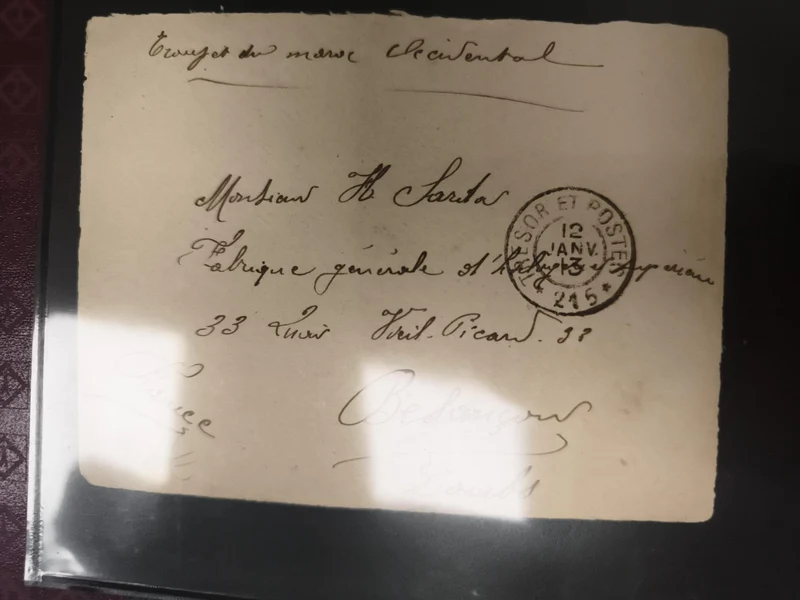 Troupes du maroc Occidental
Monsieur H Sarda
TRESOR ET POSTES
12
JANV.
13
* 215 *
Fabrique générale d'horlogerie
33 Quai Veil-Picard. 33
France
Besançon
Doubs